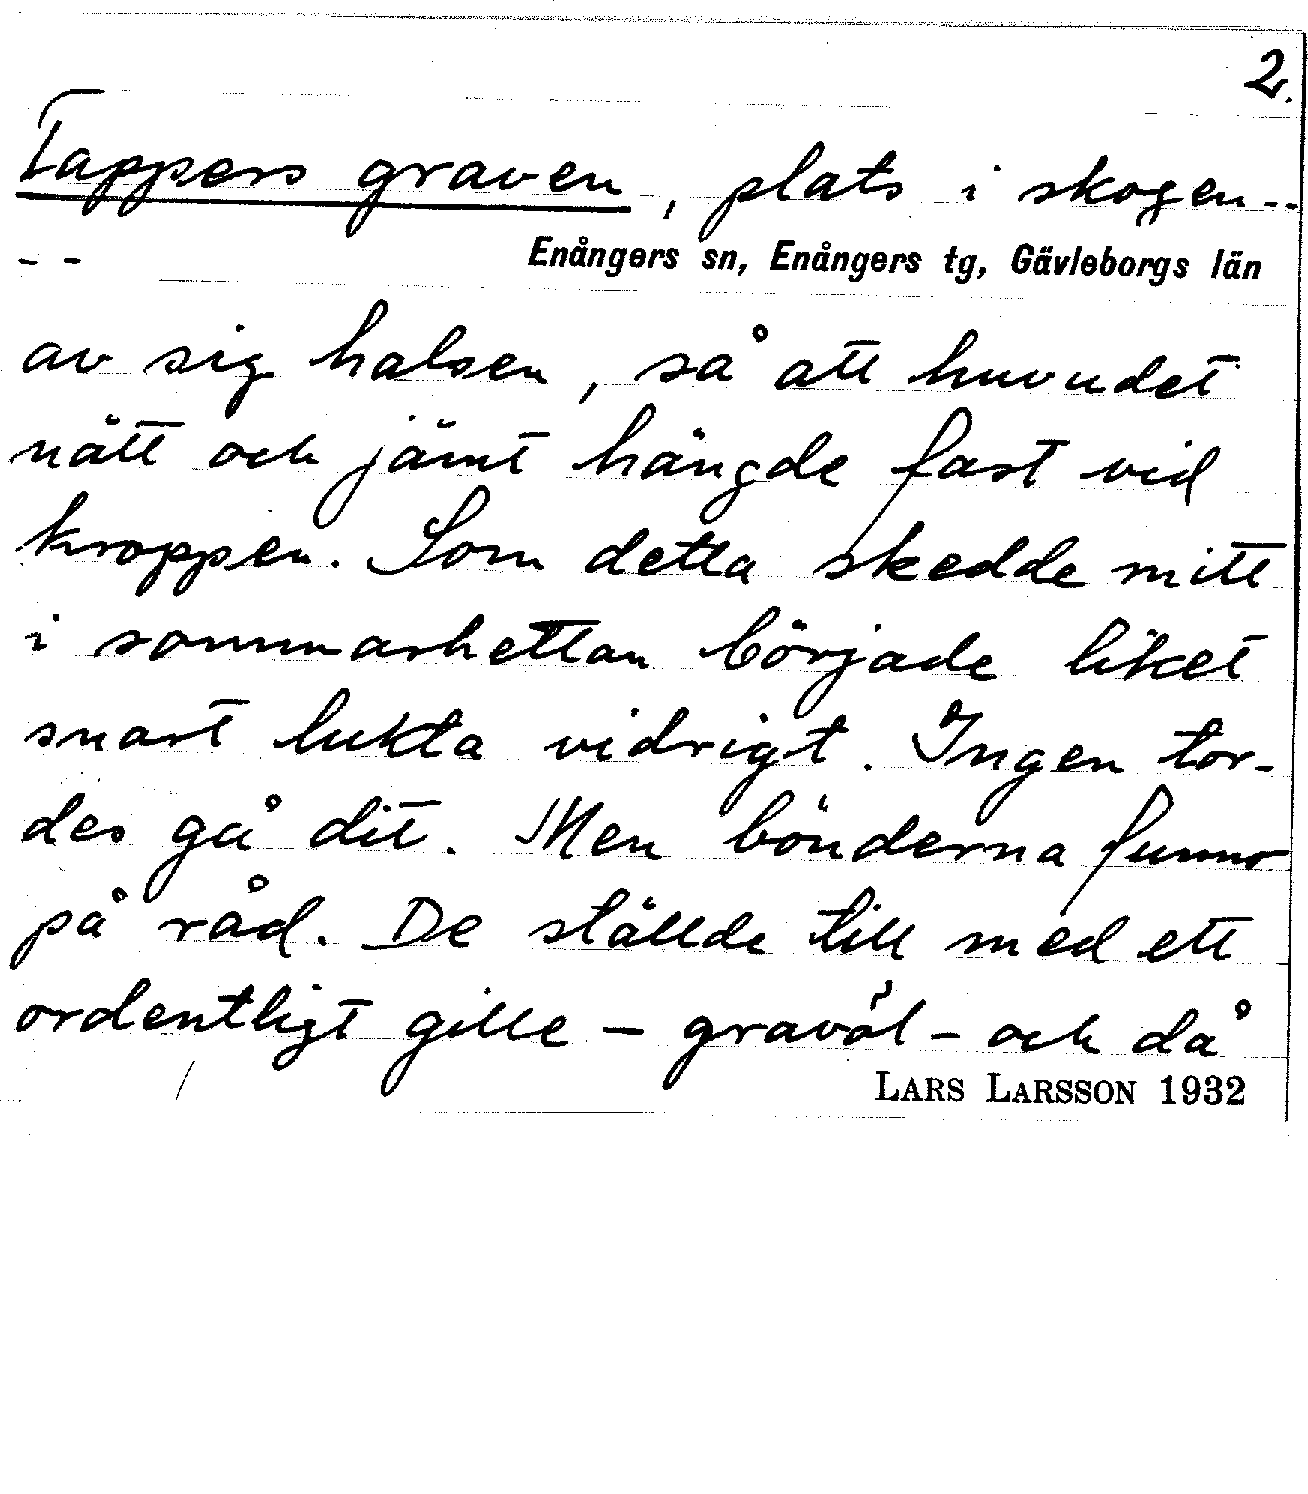 2.
Tappers graven, plats i skogen --
- -
Enångers sn, Enångers tg, Gävleborgs län
av sig halsen, så att huvudet
nätt och jämt hängde fast vid
kroppen. Som detta skedde mitt
i sommarhettan började liket
snart lukta vidrigt. Ingen tor-
des gå dit. Men bönderna funno
på råd. De ställde till med ett
ordentligt gille - gravöl - och då
LARS LARSSON 1932